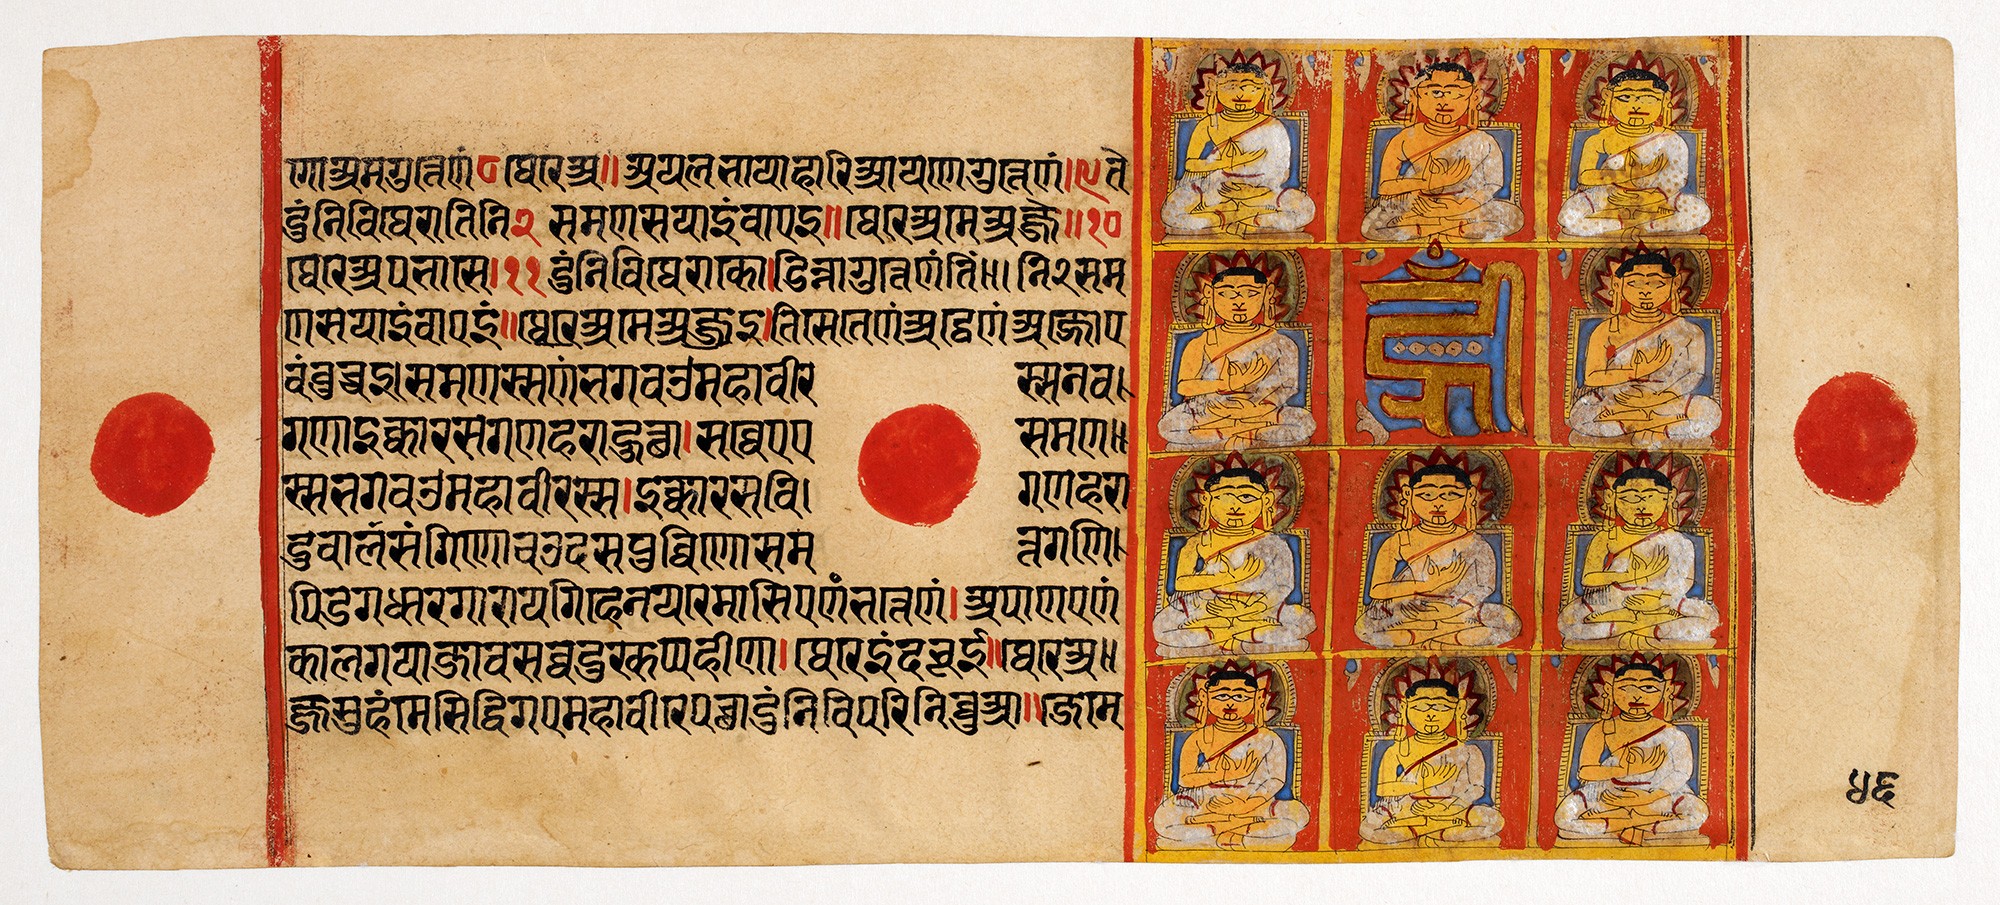 णेअमगुत्तेणं८ थेरेअ॥ अयलभायाहारिआयणेगुत्तेणं।९ते
दुंनिविथेरातिंनि२ समणसयाइंवाएइ॥थेरेअमेअज्जे॥१०
थेरेअपभासे।११ दुंनिविथेराको।डिन्नागुत्तेणंतिं॥। नि२सम
णसयाइंवाएइं॥थेरेअमेअज्जइ।सेतेणंअट्ठेणंअज्जोए
वंवुच्चइ।समणस्सणंभगवउमहावीर स्सनव।
गणाइक्कारसगणहराहुत्था।सव्वेएए समण॥
स्सभगवउमहावीरस्स।इक्कारसवि। गणहरा
दुवालसंगिणोचउदसपुव्विणोसम त्तगणि।
पिडगधारगारायगिहेनयरेमासिएणंभत्तेणं। अपाणएणं
कालगयाजावसव्वदुरकप्पहीणा। थेरेइंदभूई॥थेरेअ॥
ज्जसुहंमेसिद्धिगएमहावीरेपच्छादुंनिविपरिनिव्वुआ॥जेमे
५६